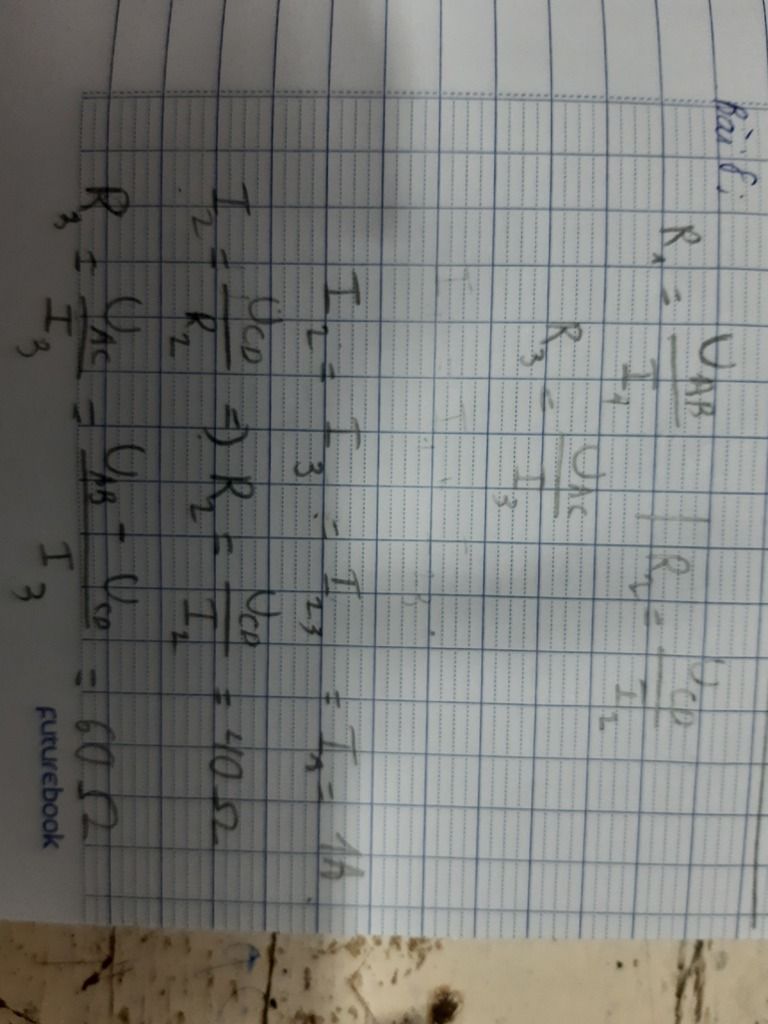 Bài 8:
R₁ = U_AB / I₁ | R₂ = U_CD / I₂
R₃ = U_AC / I₃
I₂ = I₃ = I₂₃ = I_A = 1A
I₂ = U_CD / R₂ => R₂ = U_CD / I₂ = 40Ω
R₃ = U_AC / I₃ = U_AB - U_CD / I₃ = 60Ω
FUTUREBOOK